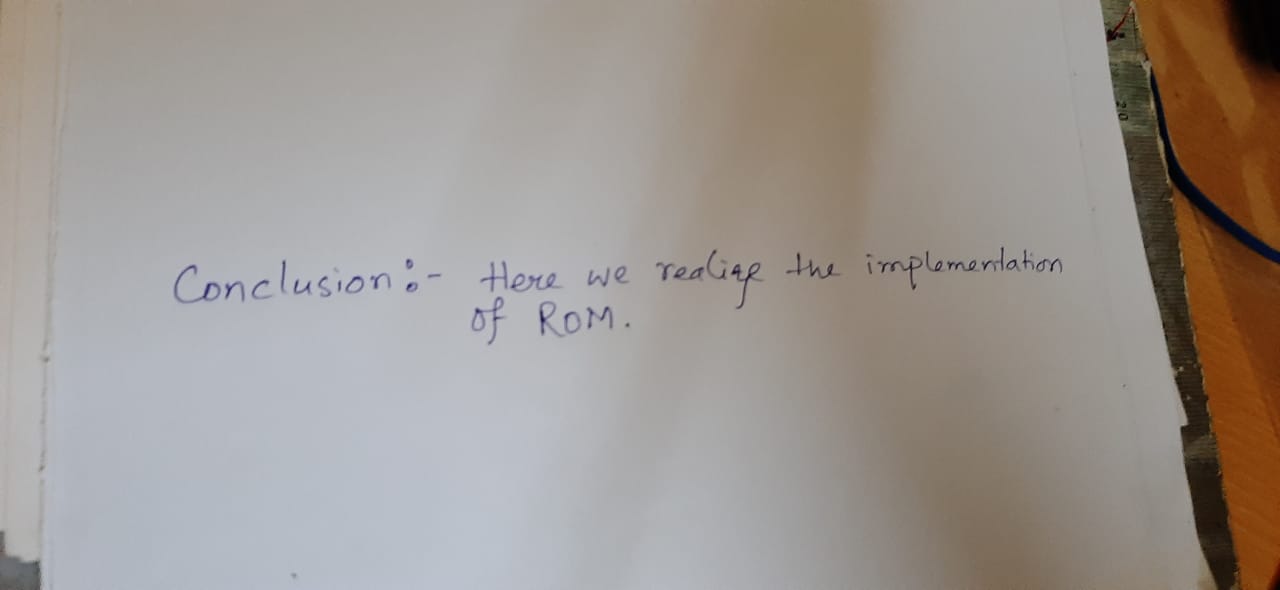 Conclusion :- Here we realize the implementation
of ROM.
20